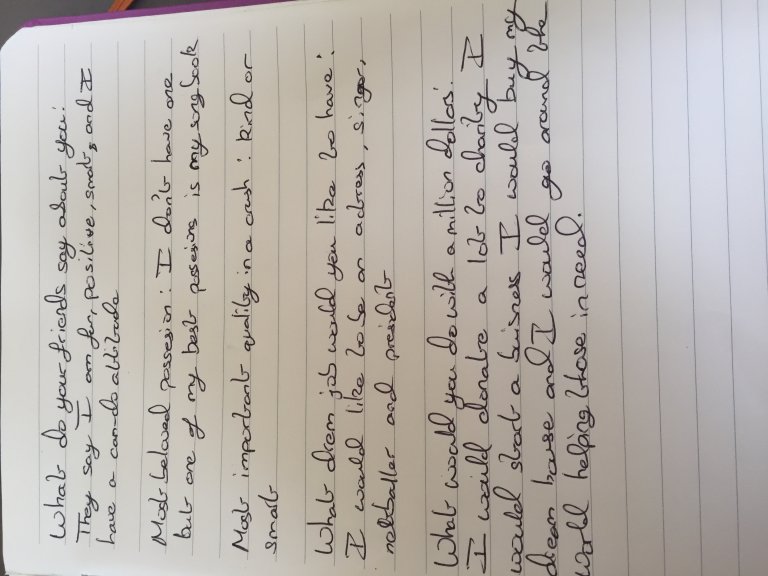 What do your friends say about you:
They say I am fun, positive, smart, and I
have a can-do attitude
Most beloved possesion: I don't have one
but one of my best posesions is my song book
Most important quality in a crush: Kind or
smart
What dream job would you like to have:
I would like to be an actress, singer,
netballer and president
What would you do with a million dollars:
I would donate a lot to charity I
would start a buisness I would buy my
dream house and I would go around the
world helping those in need.